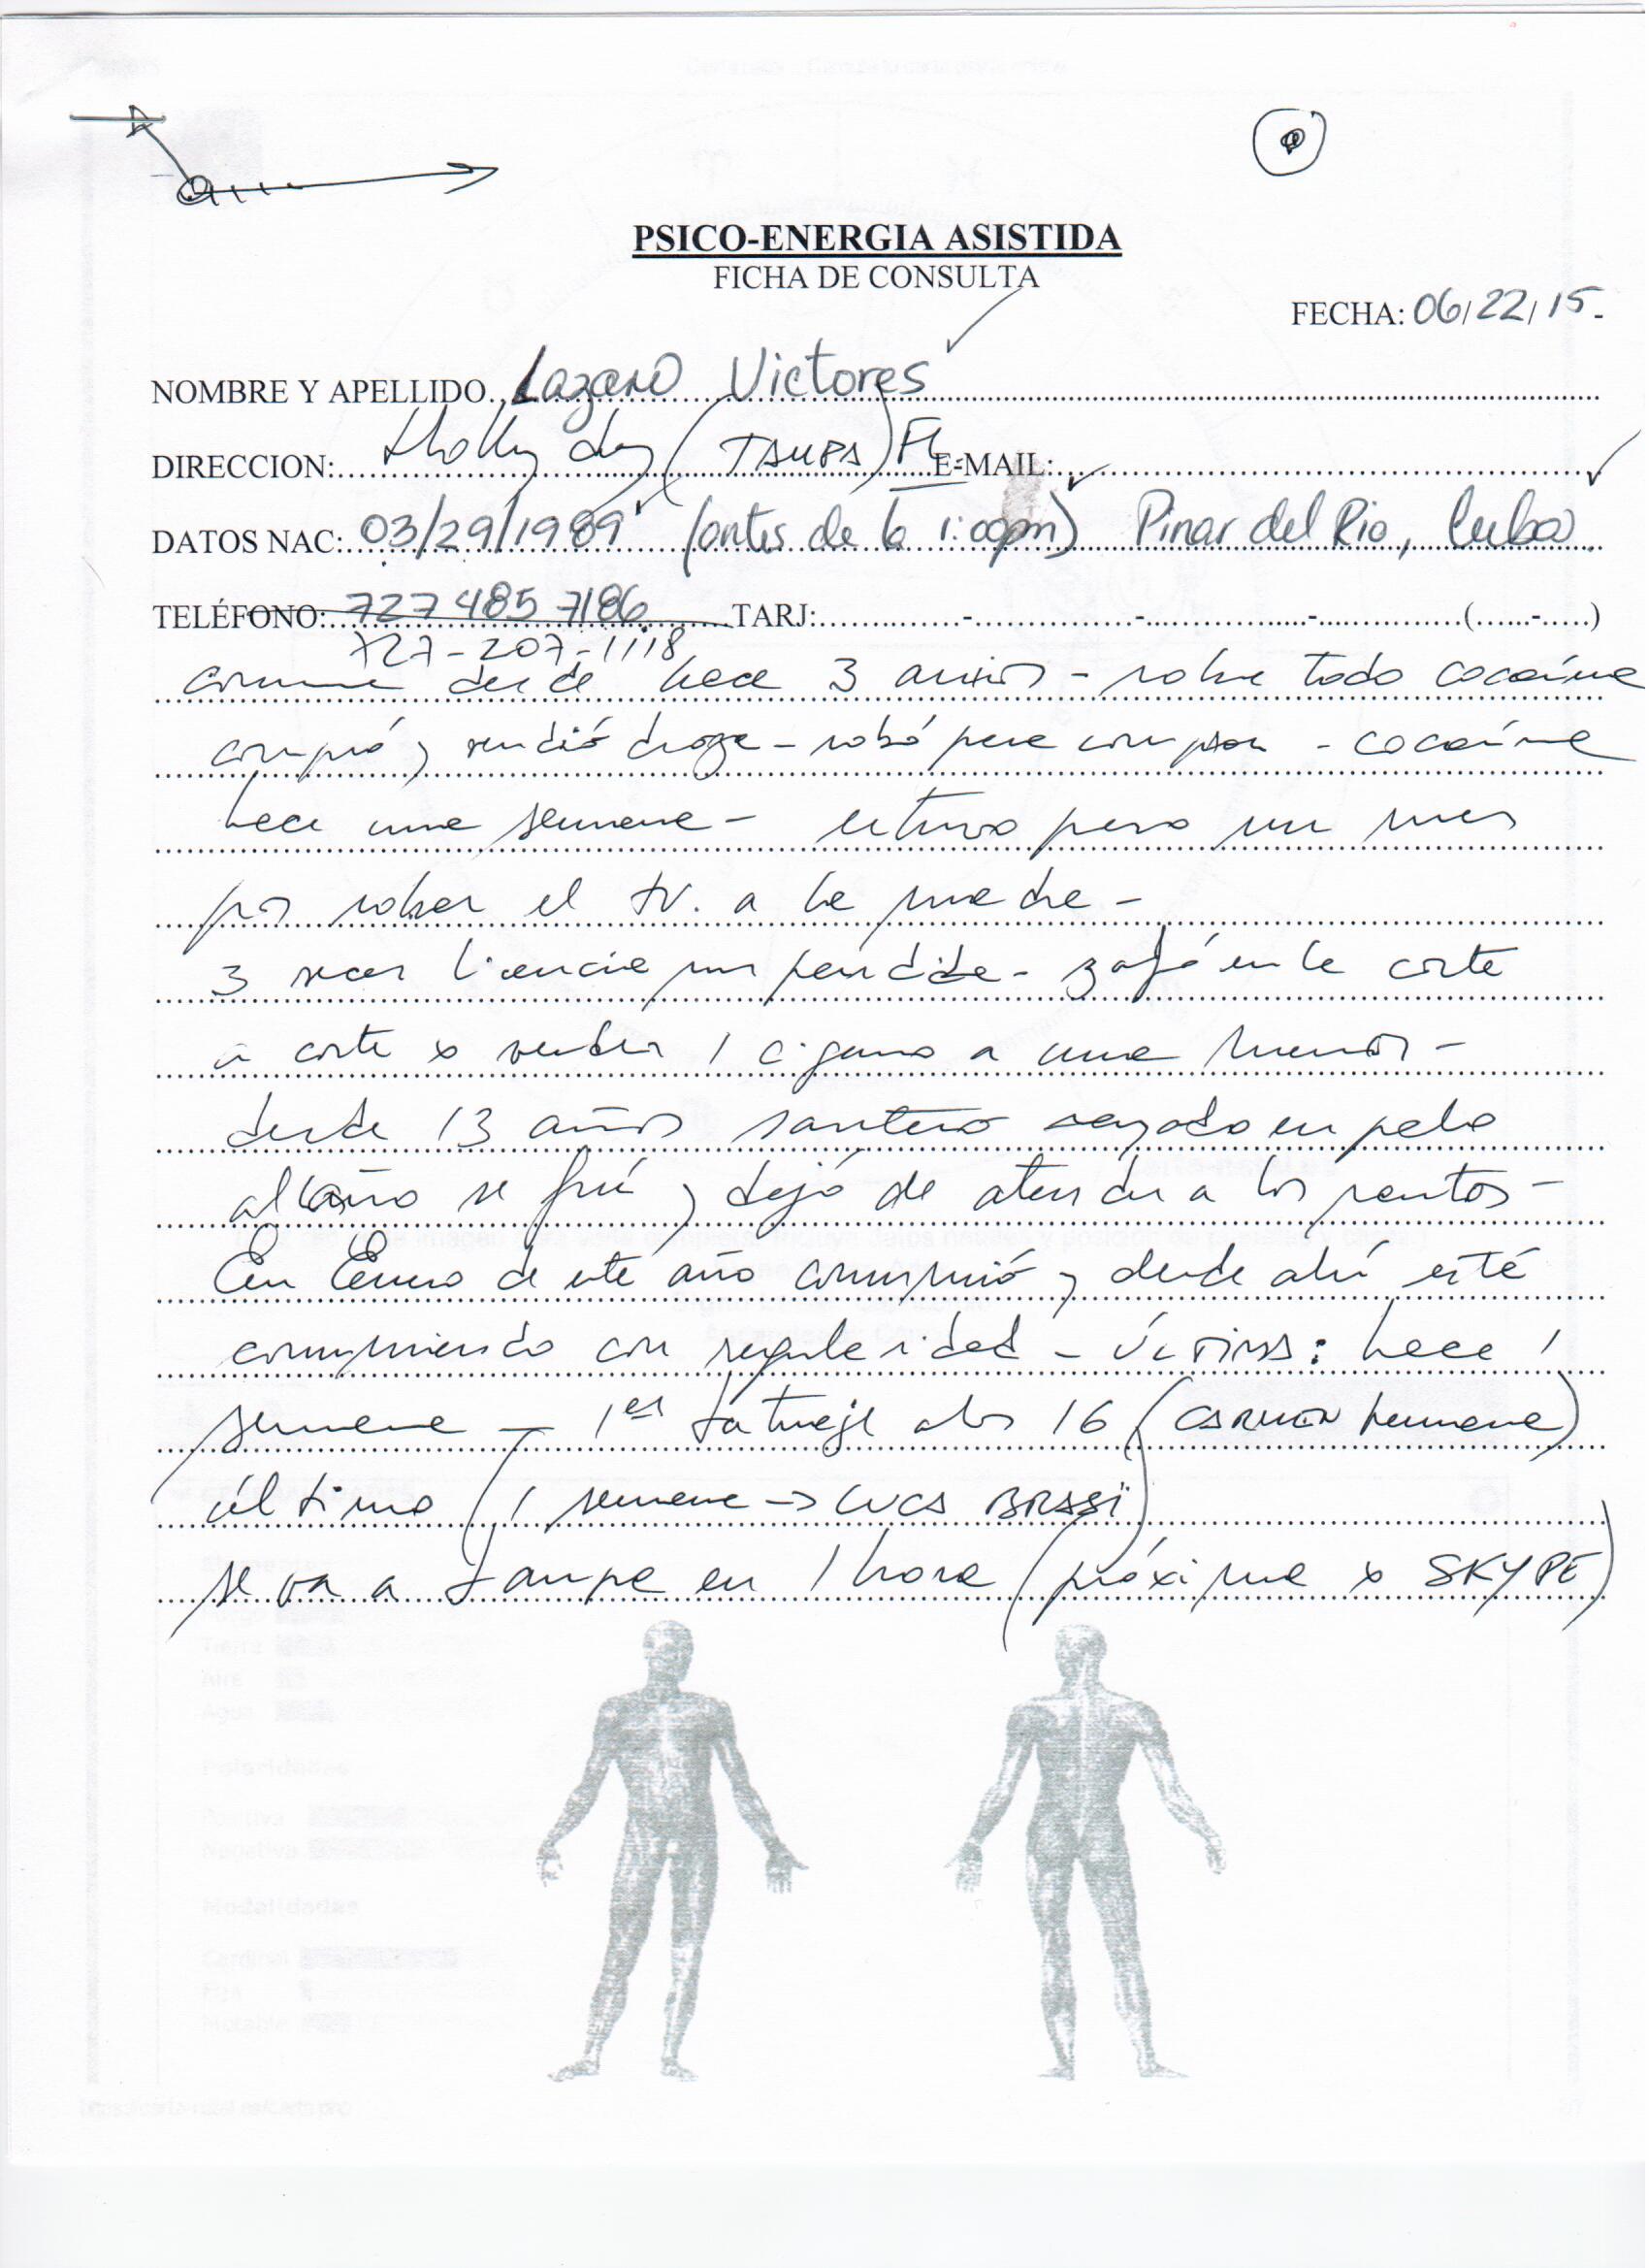 PSICO-ENERGIA ASISTIDA
FICHA DE CONSULTA
FECHA: 06/22/15-
NOMBRE Y APELLIDO Lazaro Victores
DIRECCION: Holly (TAMPA) FL E-MAIL:
DATOS NAC: 03/29/1989 (antes de la 1:00pm) Pinar del Rio, Cuba
TELÉFONO: 727 485 7186 TARJ: - - - ( - )
727-207-1118
consume desde hace 3 años - sobre todo cocaína
compró y vendió droga - robó para comprar - cocaína
hace una semana - estuvo preso un mes
por robar el TV. a la madre -
3 veces licencia suspendida - zafó en la corte
a corte x vender 1 cigarro a una menor -
desde 13 años santero rayado en palo
al año se fué y dejó de atender a los santos -
En Enero de este año consumió y desde ahí está
consumiendo con regularidad - ÚLTIMA: hace 1
semana - 1er tatuaje a los 16 (CARMEN hermana)
último (1 semana -> LUCA BRASI)
se va a Tampa en 1 hora (próxima x SKYPE)